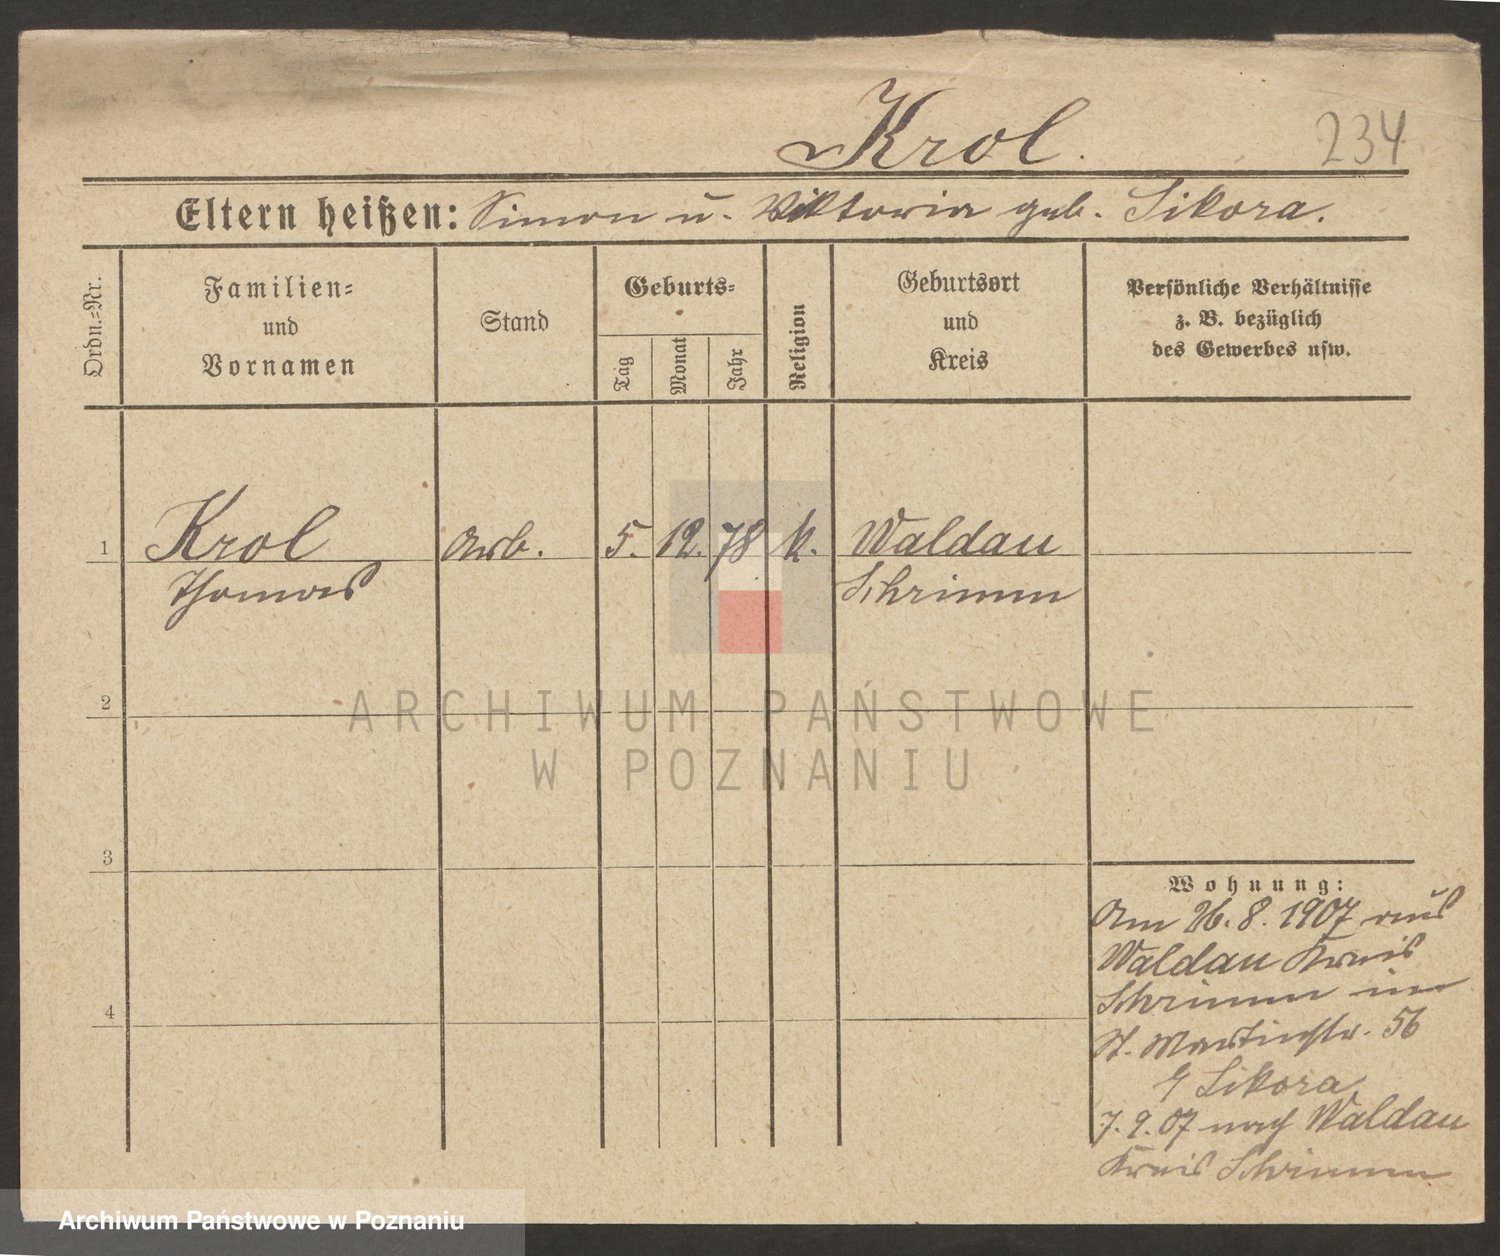 Krol.
234
Eltern heißen: Simon u. Viktoria geb. Sikora.
Ordn.-Nr.
Familien-
und
Vornamen
Stand
Geburts-
Tag
Monat
Jahr
Religion
Geburtsort
und
Kreis
Persönliche Verhältnisse
z. B. bezüglich
des Gewerbes usw.
1
Krol
Thomas
Arb.
5.
12.
78.
k.
Waldau
Schrimm
2
ARCHIWUM PAŃSTWOWE
W POZNANIU
3
4
Wohnung:
Am 26. 8. 1907 aus
Waldau Kreis
Schrimm in
St. Martinstr. 56
Sikora
7. 9. 07 nach Waldau
Kreis Schrimm
Archiwum Państwowe w Poznaniu